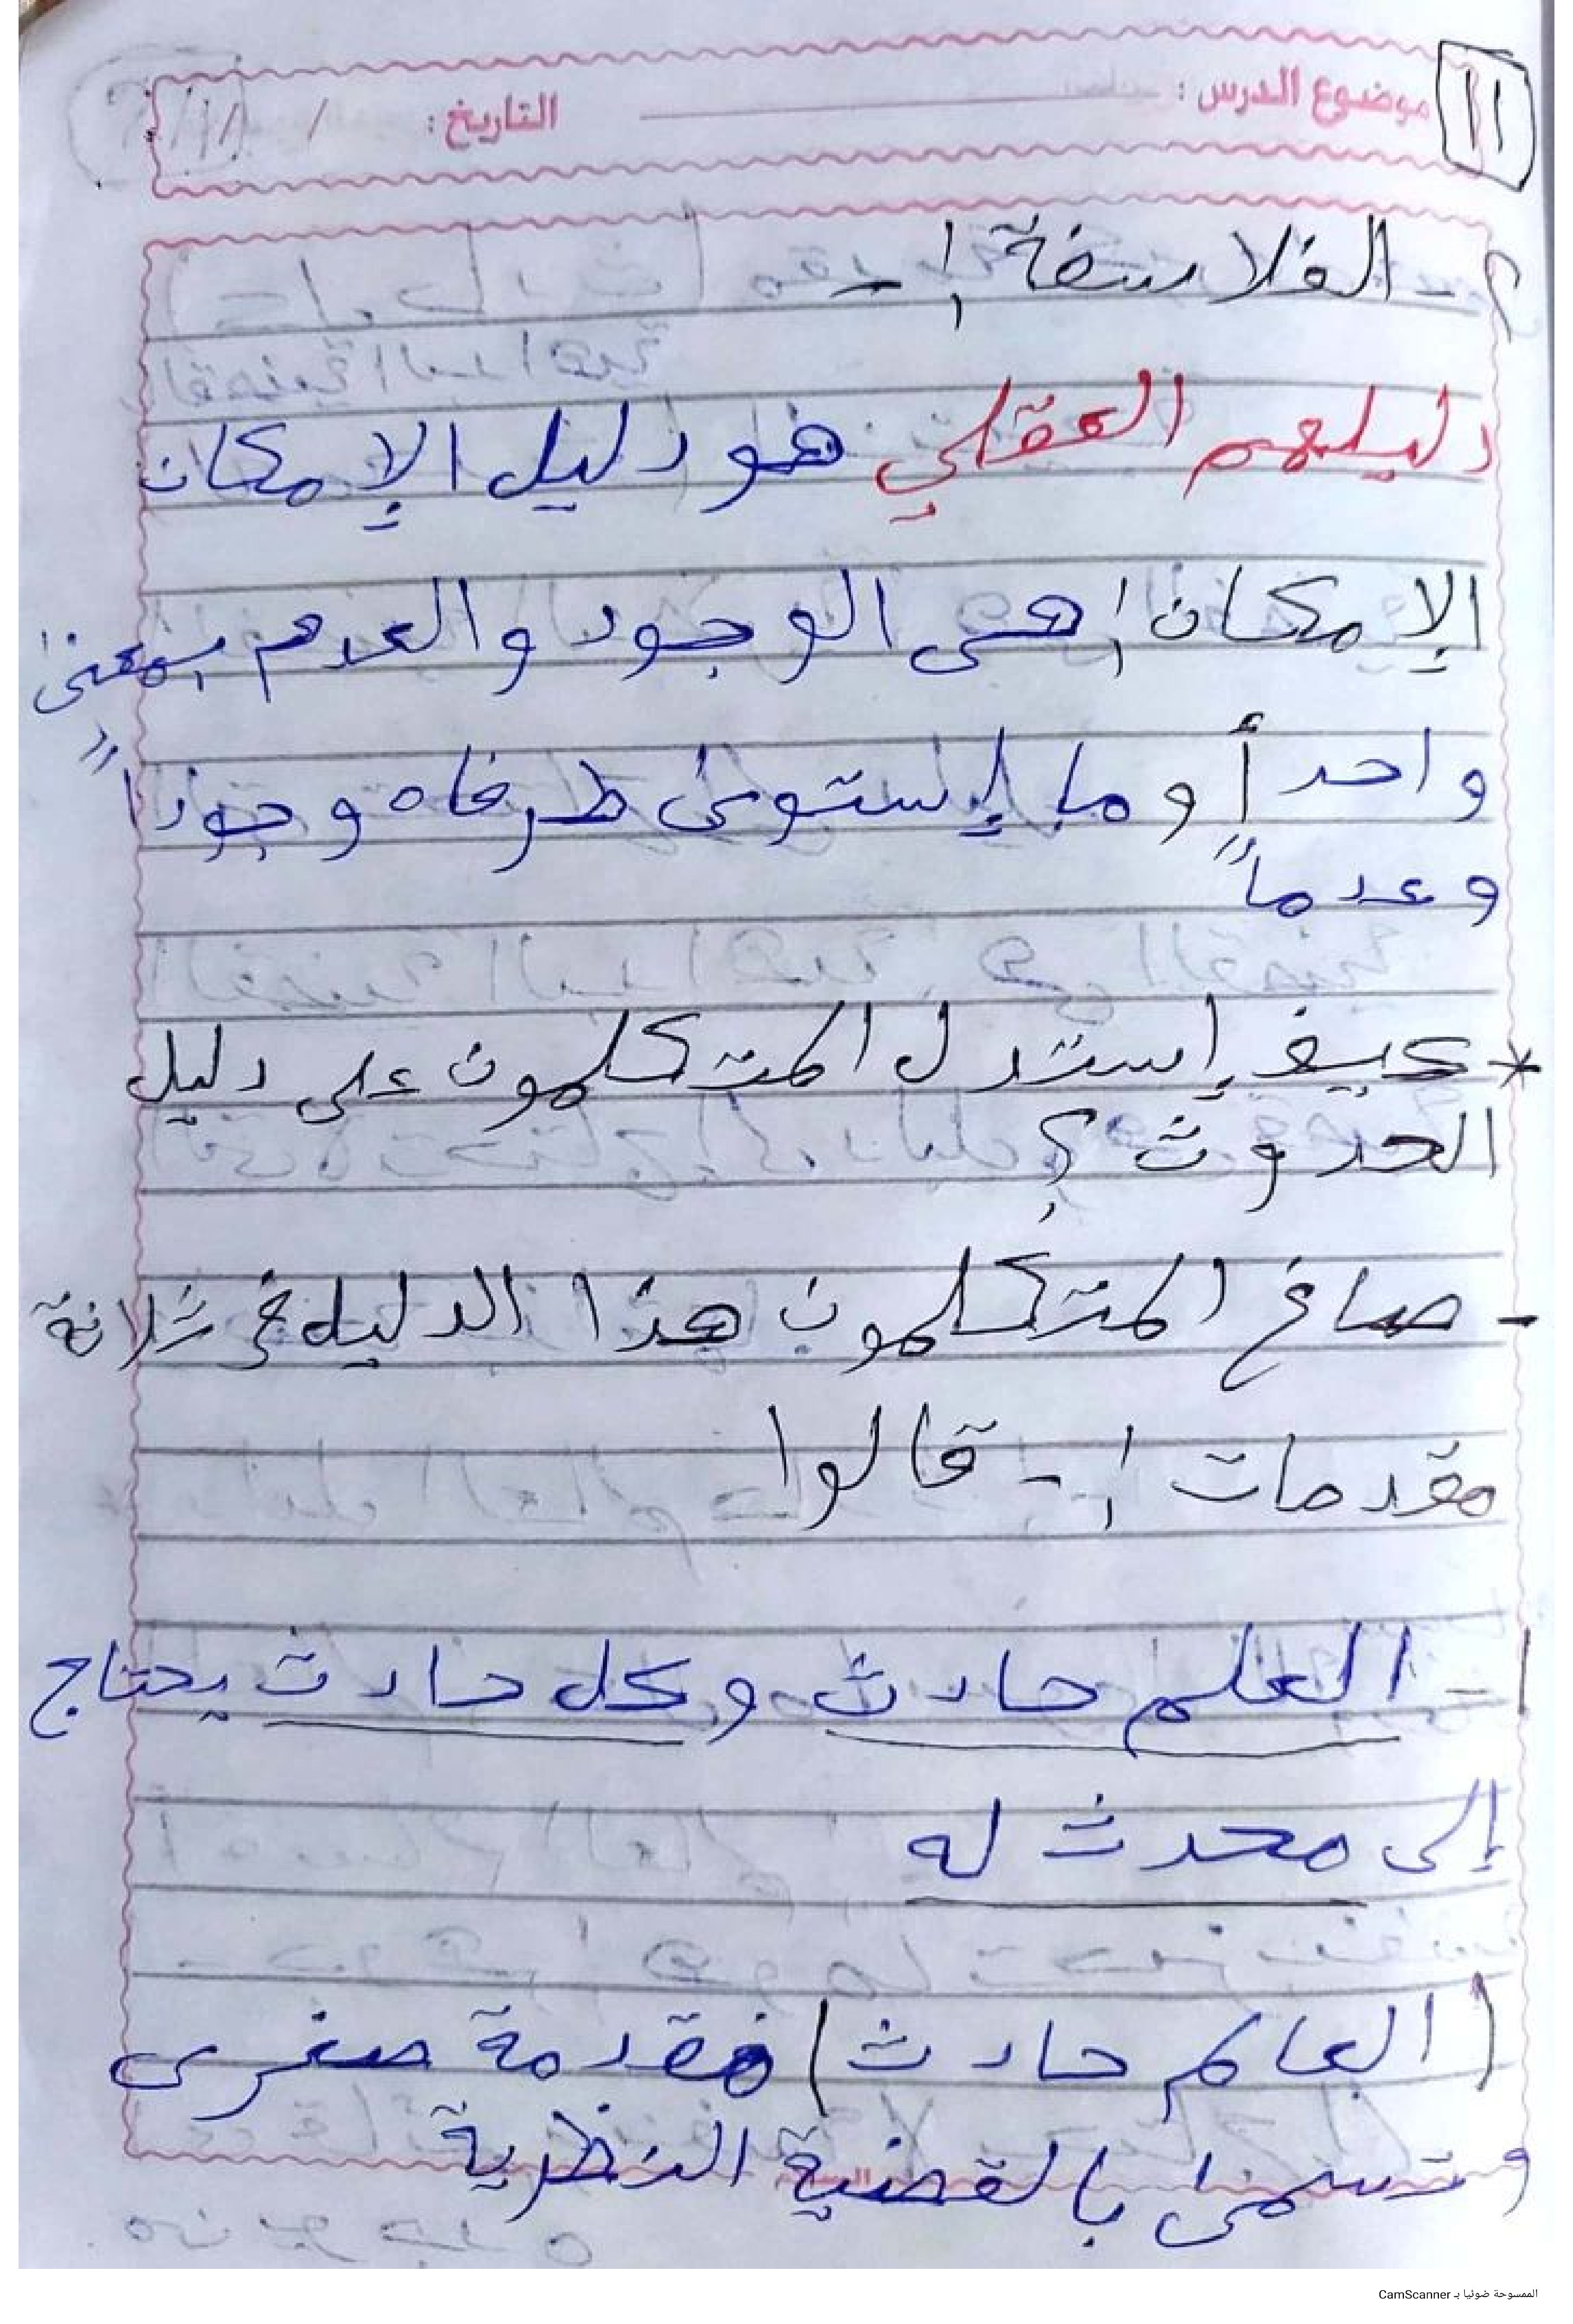 ١١
موضوع الدرس :
التاريخ : / /
٢ - الفلاسفة :-
دليلهم العقلي هو دليل الإمكان
الإمكان : هى الوجود والعدم بمعنى
واحد أو ما يستوى طرفاه وجوداً
وعدماً
* كيف إستدل المتكلمون على دليل
الحدوث ؟
- صاغ المتكلمون هذا الدليل فى ثلاثة
مقدمات :- قالوا
١ - العلم حادث وكل حادث يحتاج
إلى محدث له
( العالم حادث ) مقدمة صغرى
وتسمى بالقضية النظرية
الممسوحة ضوئيا بـ CamScanner